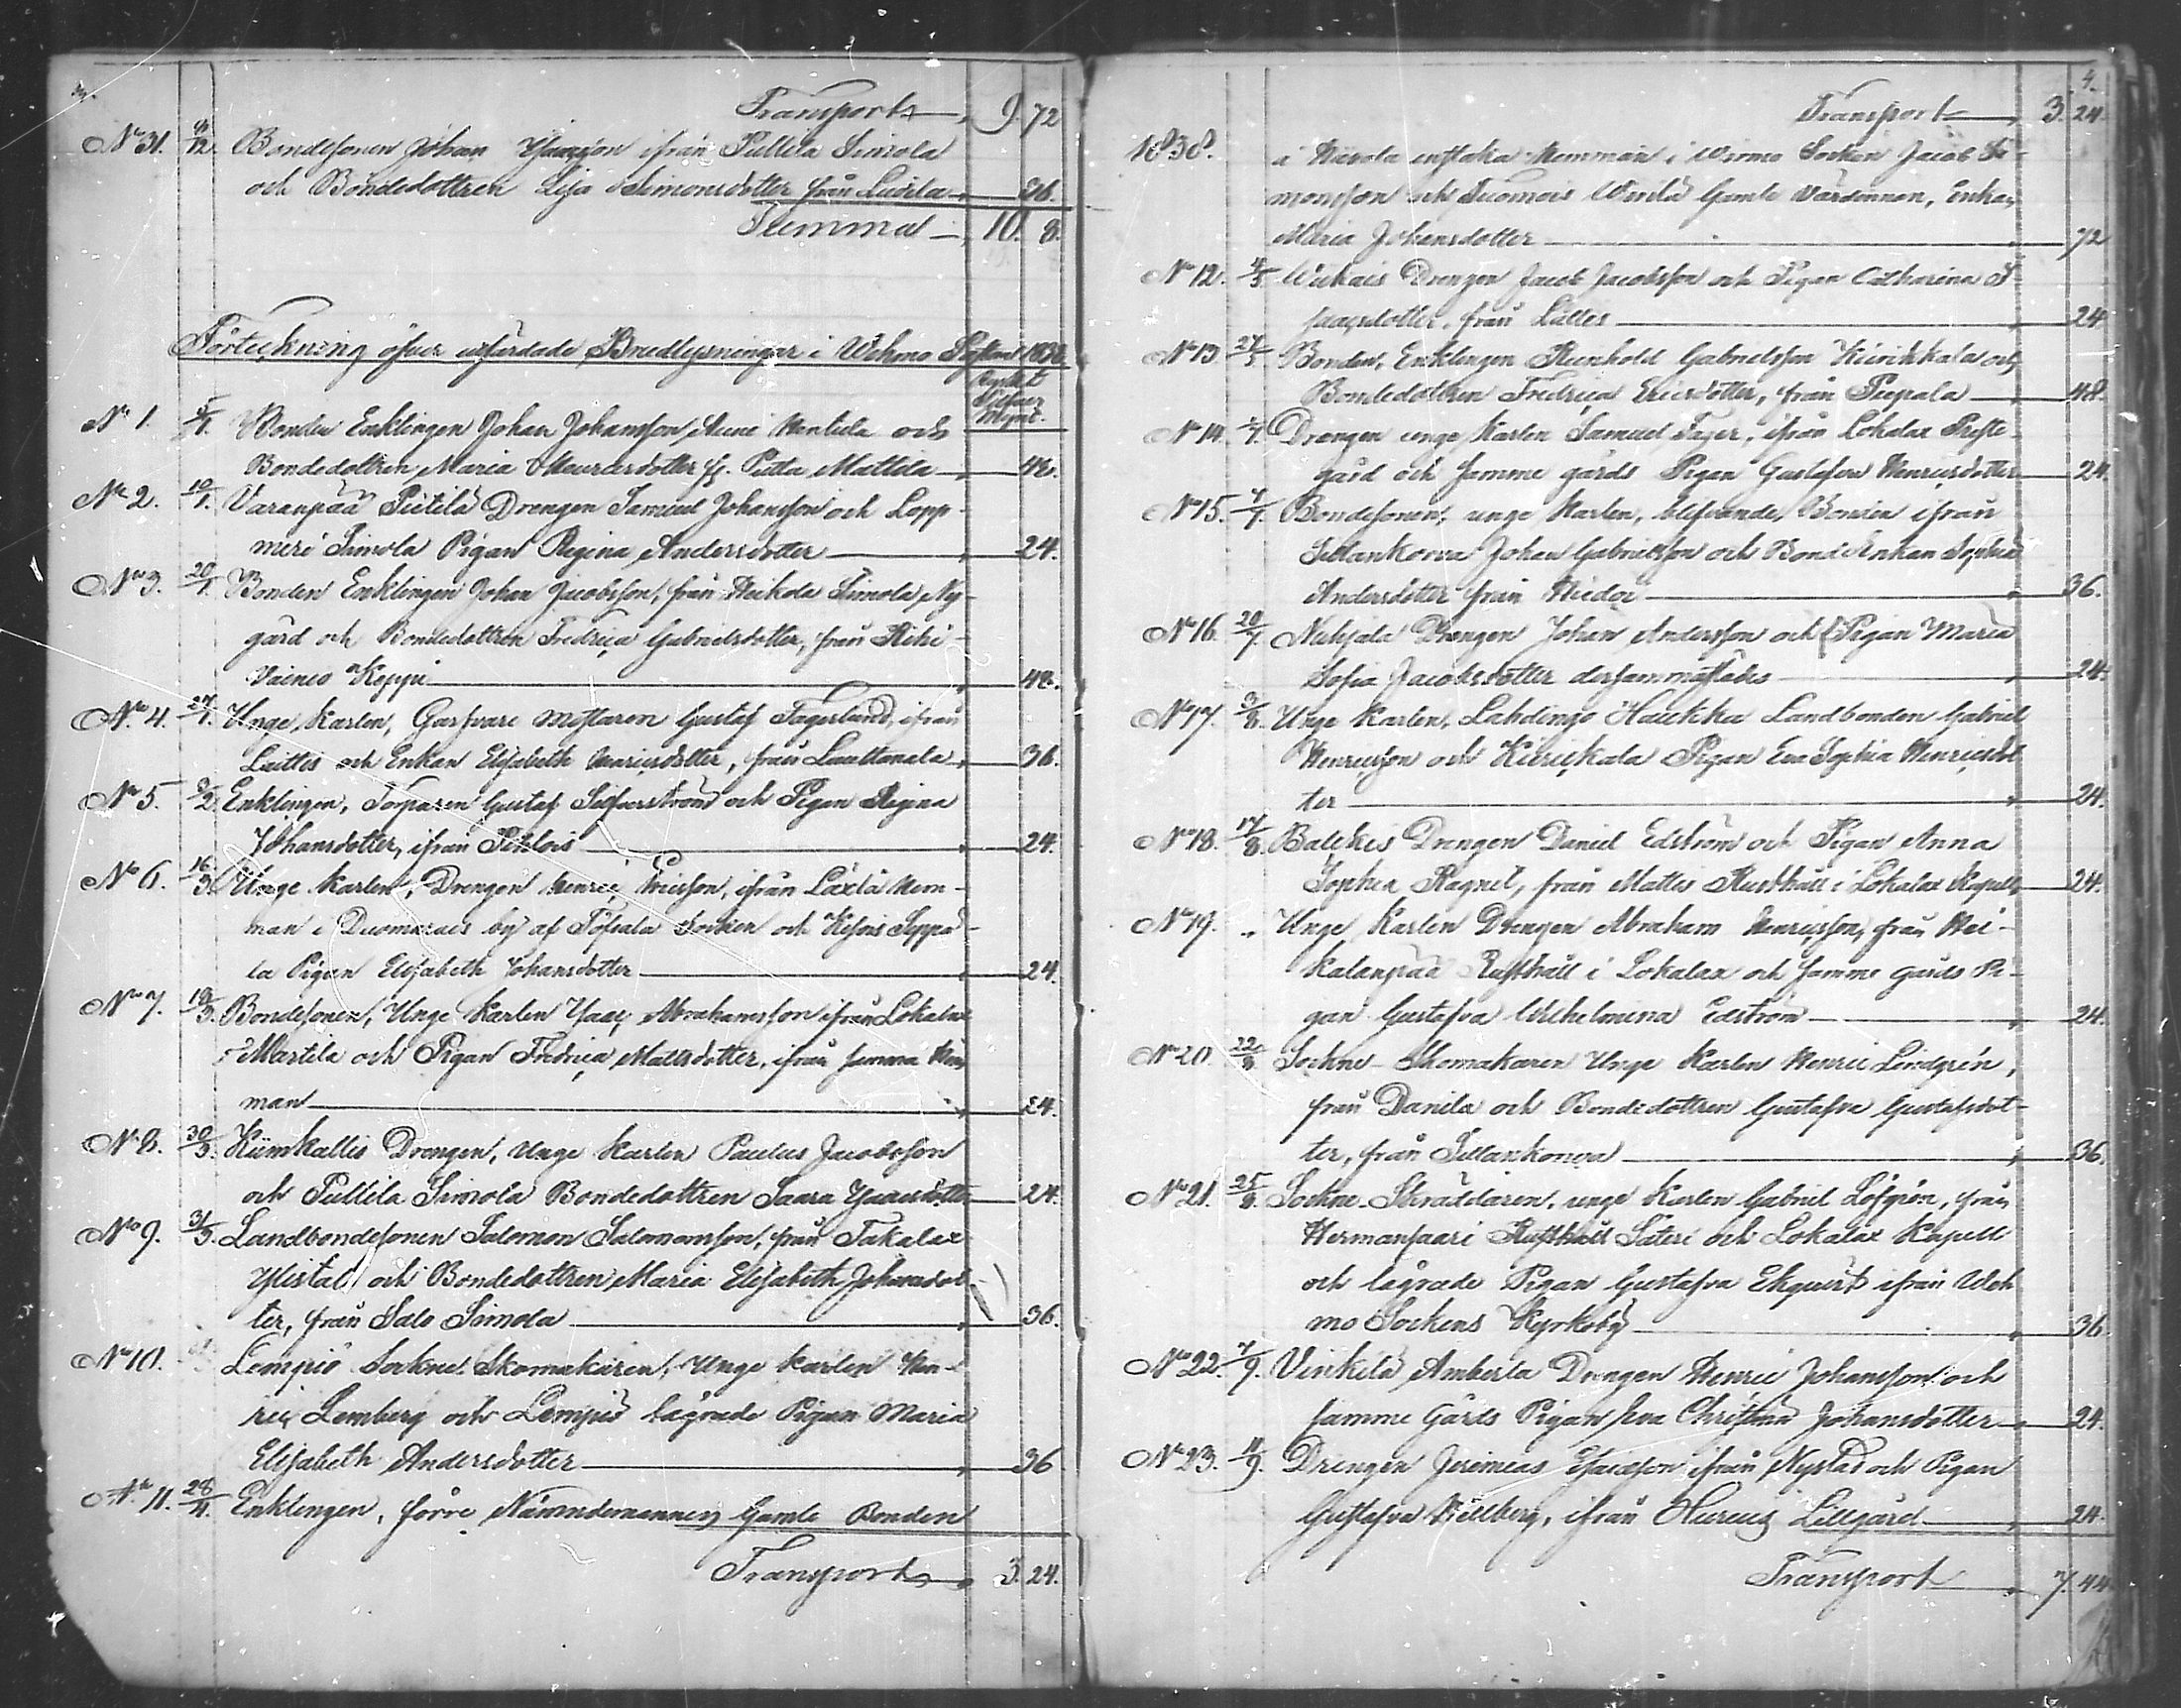 Transport 9. 72
No 31. 9/12. Bondesonen Johan Isacsson ifrån Pullila Simola
och Bondedottren Lisa Simonsdotter från Luisla 36.
Summa 10. 8.
Förteckning öfver utfärdade Bredlysningar i Wehmo 1838
Ryskt
Silfver
Mynt.
No 1. 5/1. Bonden Enklingen Johan Johansson och
Bondedottren Maria Mauritzdotter fr. Putta Mattila 48.
No 2. 10/1. Varanpää Pietilä Drengen Samuel Johansson och Lopp-
meri Simola Pigan Regina Andersdotter 24.
No 3. 20/1. Bonden Enklingen Johan Jacobsson, från Heikola Simola Ny-
gård och Bondedottren Fredrica Gabrielsdotter, från Rihi-
Vainio Keppi 48.
No 4. 27/1. Unge Karlen, Garfvare mästaren Gustaf Fagerlund, ifrån
Laittis och Enkan Elisabeth Henricsdotter, från Lauttanala 36.
No 5. 9/2. Enklingen, Torparen Gustaf Silfverström och Pigan Regina
Johansdotter, ifrån Piklois 24.
No 6. 16/3. Unge Karlen, Drengen Henric Ericsson, ifrån Laxlä Hem-
man i Duomarais by af Töfsala Socken och Seppä-
lä Pigan Elisabeth Johansdotter 24.
No 7. 18/3. Bondesonen, Unge Karlen Isaac Abrahamsson ifrån Lokalax
Martila och Pigan Fredrica Mattsdotter, ifrån samma Hem-
man 24.
No 8. 30/3. Kiimkallis Drengen, unge Karlen Paulus Jacobsson
och Pullila Simola Bondedottren Saara Isaacsdotter 24.
No 9. 31/3. Landbondesonen Salomon Salomonsson, från Takalax
Ylistal och Bondedottren Maria Elisabeth Johansdot-
ter, från Salo Simola 36.
No 10. Lempiö Sockne Skomakaren, Unge Karlen Hen-
ric Lemberg och Lempiö lägrade Pigan Maria
Elisabeth Andersdotter 36
No 11. 28/4. Enklingen, förre Nämndemannen Gamle Bonden
Transport 3. 24.
4.
Transport 3. 24.
1838. å Hävola enstaka Hemman i Wirmo Socken Jacob Si-
monsson och Tuomois Wirilä Gamle Värdinnan, Enkan
Maria Johansdotter 72
No 12. 4/5. Wiikais Drengen Jacob Jacobsson och Pigan Catharina I-
saacsdotter, från Lälles 24
No 13 27/5. Bonden, Enklingen Reinhold Gabrielsson Kiirikkala och
Bondedottren Fredrica Ericsdotter, från Piepala 48.
No 14. 1/7. Drengen unge Karlen Samuel Fager, ifrån Lokalax Preste-
gård och samme gårds Pigan Gustafva Henricsdotter 24.
No 15. 7/7. Bondesonen, unge Karlen, blifvande Bonden ifrån
Sillankorva Johan Gabrielsson och Bonde Enkan Sophia
Andersdotter från Hiedoi 36.
No 16. 20/7. Nuhjala Drengen Johan Andersson och Pigan Maria
Sofia Jacobsdotter dersammastädes 24.
No 17. 3/8. Unge Karlen, Lahdingo Haukka Landbonden Gabriel
Henricsson och Kiirikkala Pigan Eva Sophia Henricsdot
ter 24.
No 18. 17/8. Balckis Drengen Daniel Edström och Pigan Anna
Sophia Ragnel, från Mattis Rusthåll i Lokalax Kapell 24.
No 19. " Unge Karlen Drengen Abraham Henricsson, från Hai-
kalanpää Rusthåll i Lokalax och samme gårds Pi-
gan Gustafva Wilhelmina Edström 24.
No 20. 22/8. Sockne-Skomakaren Unge Karlen Henric Lindgrén,
från Danila och Bondedottren Gustafva Gustafsdot-
ter, från Sillankorva 36.
No 21. 25/8. Sockne-Skräddaren, unge Karlen Gabriel Löfgrén, från
Hermansaari Rusthåll Säteri och Lokalax Kapell
och lägrade Pigan Gustafva Ekquist ifrån Weh
mo Sockens Kyrkoby 36
No 22. 7/9. Vinkilä Amberla Drengen Henric Johansson och
samme Gårds Pigan Eva Christina Johansdotter 24.
No 23. 11/9. Drengen Jeremias Isacsson ifrån Nystad och Pigan
Gustafva Willberg, ifrån Hurnis Lillgård 24.
Transport 7. 44